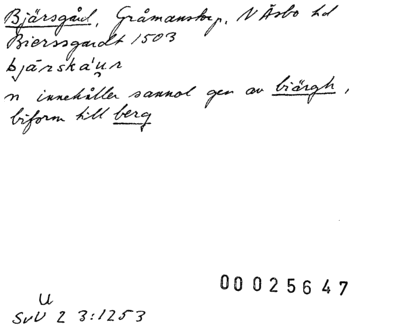 Bjärsgård, Gråmanstorp, N Åsbo hd
Bierssgardt 1503
bjä̀rská'ụr
n innehåller sannol gen av biärgh,
biform till berg
00025647
U
SvU 2 3:1253